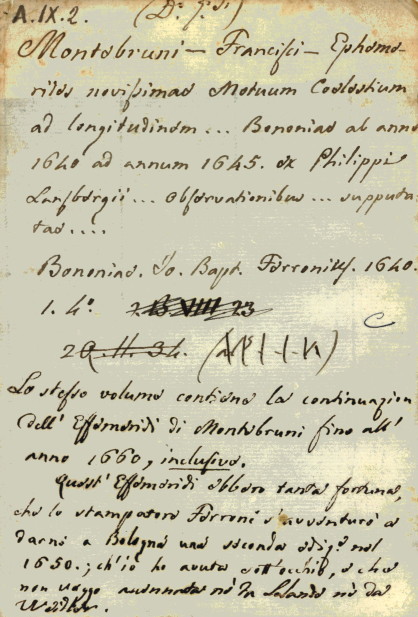 A.IX.2. (Dn. 7. S)
Montebruni — Francisci — Epheme-
rides novissimae Motuum Coelestium
ad longitudinem ... Bononiae ab anno
1640 ad annum 1645. ex Philippi
Lansbergii ... observationibus ... supputa-
tae....
Bononiae. Jo. Bapt. Ferronius. 1640.
1. 4º. 2. B VIII 23
C
2 Q. II. 34.
Lo stesso volume contiene la continuazion
dell' Effemeridi di Montebruni fino all'
anno 1660, inclusive.
Quest' Effemeridi ebbero tanta fortuna,
che lo stampatore Ferroni s'avventurò a
darne a Bologna una seconda ediz.e nel
1650.; ch'io ho avuta sott'occhio, e che
non veggo accennata nè da Lalande nè da
Weidler.